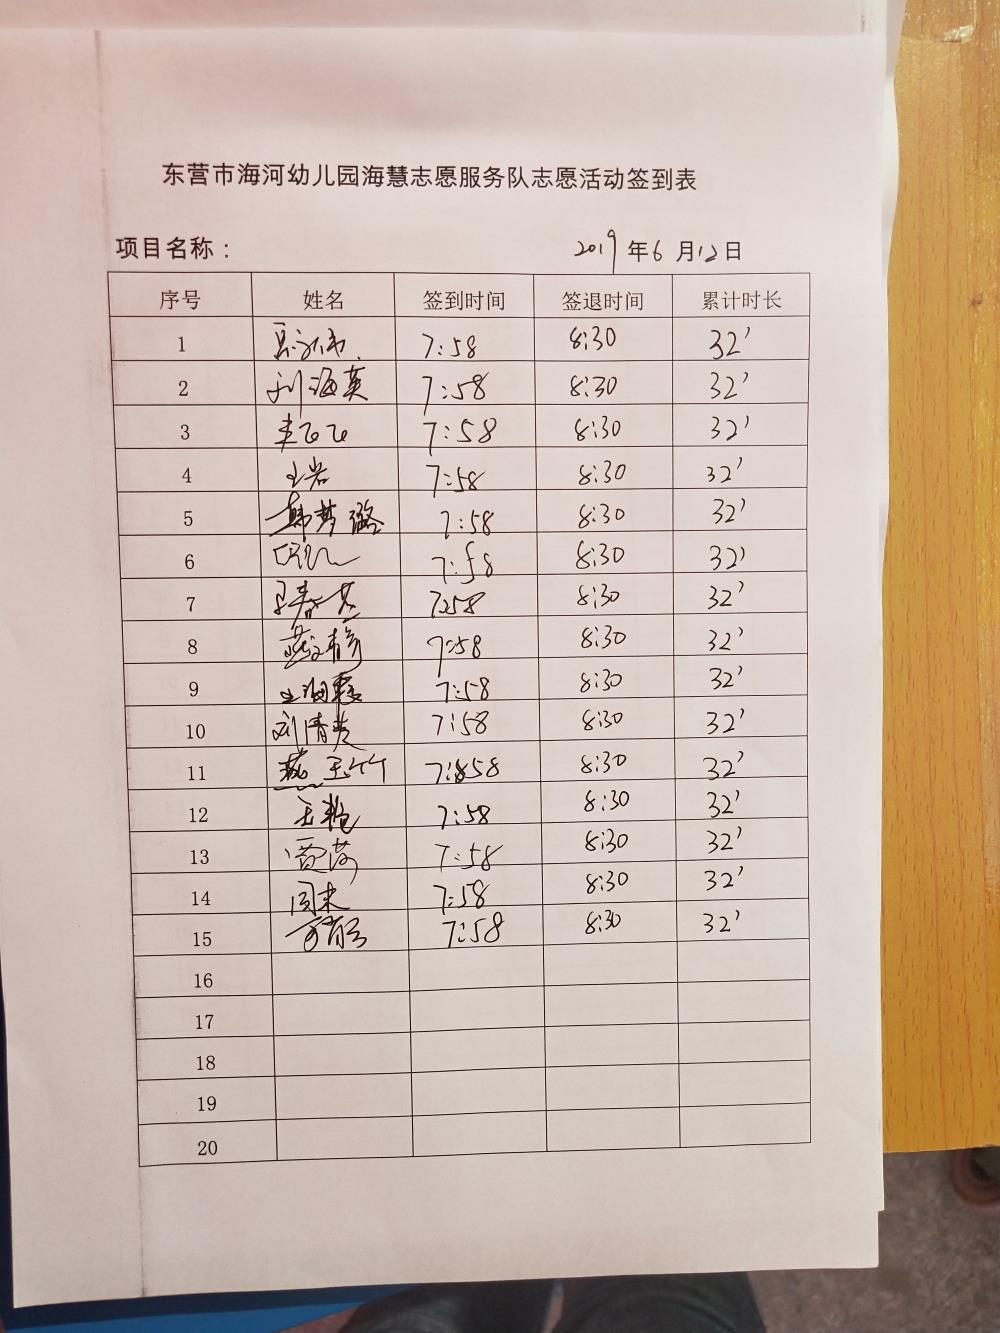 东营市海河幼儿园海慧志愿服务队志愿活动签到表
项目名称： 2019年6月12日
序号 姓名 签到时间 签退时间 累计时长
1 7:58 8:30 32'
2 刘海英 7:58 8:30 32'
3 7:58 8:30 32'
4 王岩 7:58 8:30 32'
5 韩梦璐 7:58 8:30 32'
6 7:58 8:30 32'
7 7:58 8:30 32'
8 燕文静 7:58 8:30 32'
9 王海霞 7:58 8:30 32'
10 刘清芝 7:58 8:30 32'
11 燕玉竹 7:58 8:30 32'
12 王艳 7:58 8:30 32'
13 贾荷 7:58 8:30 32'
14 周末 7:58 8:30 32'
15 7:58 8:30 32'
16
17
18
19
20